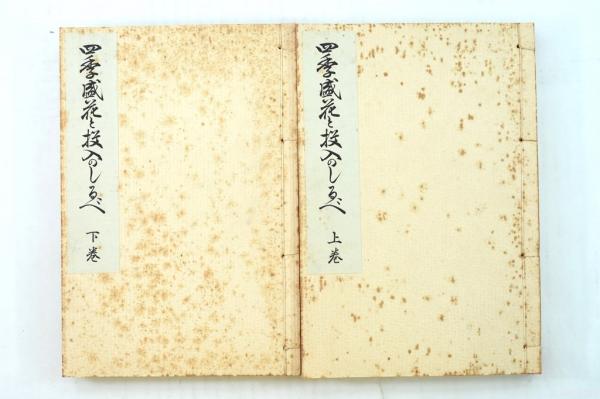 四季盛花と投入のしるべ
上巻
四季盛花と投入のしるべ
下巻